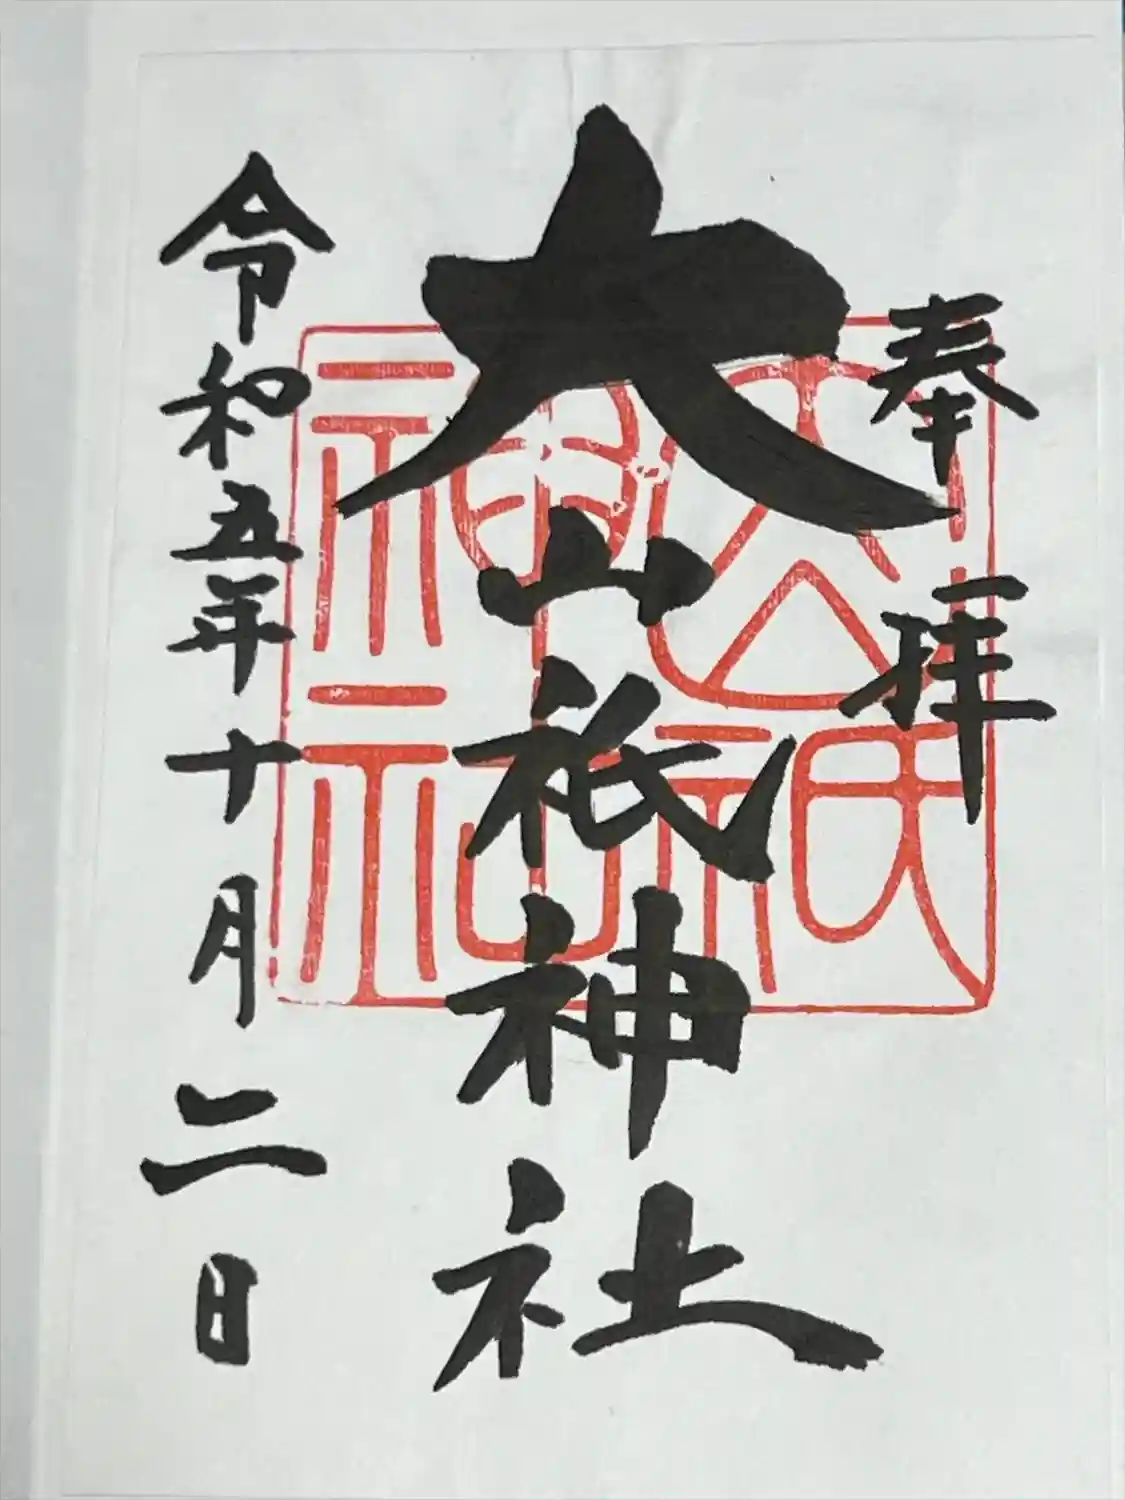 奉拝
大山祇神社
大山祇神社
令和五年十月二日